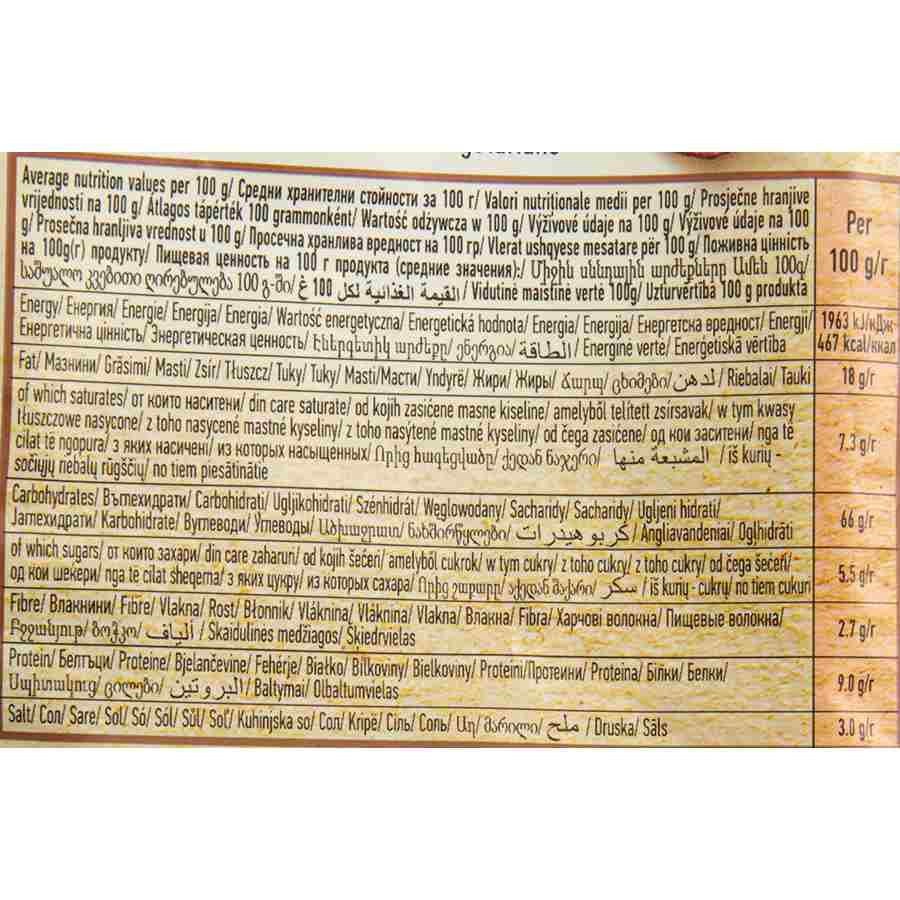 Average nutrition values per 100 g/ Средни хранителни стойности за 100 г/ Valori nutritionale medii per 100 g/ Prosječne hranjive
vrijednosti na 100 g/ Átlagos tápérték 100 grammonként/ Wartość odżywcza w 100 g/ Výživové údaje na 100 g/ Výživové údaje na 100
g/ Prosečna hranljiva vrednost u 100 g/ Просечна хранлива вредност на 100 гр/ Vlerat ushqyese mesatare për 100 g/ Поживна цінність
на 100g(г) продукту/ Пищевая ценность на 100 г продукта (средние значения):/ Միջին սննդային արժեքները Ամեն 100գ/
საშუალო კვებითი ღირებულება 100 გ-ში/ القيمة الغذائية لكل 100 غ / Vidutinė maistinė vertė 100g/ Uzturvērtība 100 g produkta
Per
100 g/г
Energy/ Енергия/ Energie/ Energija/ Energia/ Wartość energetyczna/ Energetická hodnota/ Energia/ Energija/ Енергетска вредност/ Energji/
Енергетична цінність/ Энергетическая ценность/ Էներգետիկ արժեքը/ ენერგია/ الطاقة / Energinė vertė/ Enerģētiskā vērtība
1963 kJ/кДж-
467 kcal/ккал
Fat/ Мазнини/ Grăsimi/ Masti/ Zsír/ Tłuszcz/ Tuky/ Tuky/ Masti/Масти/ Yndyrë/ Жири/ Жиры/ Ճարպ/ ცხიმები/ لدهن / Riebalai/ Tauki
18 g/г
of which saturates/ от които наситени/ din care saturate/ od kojih zasićene masne kiseline/ amelyből telített zsírsavak/ w tym kwasy
tłuszczowe nasycone/ z toho nasycené mastné kyseliny/ z toho nasýtené mastné kyseliny/ od čega zasićene/ од кои заситени/ nga të
cilat të ngopura/ з яких насичені/ из которых насыщенных/ Որից հագեցվածը/ ქედან ნაჯერი/ المشبعة منها / iš kurių -
sočiųjų riebalų rūgščių/ no tiem piesātinātie
7.3 g/г
Carbohydrates/ Въглехидрати/ Carbohidrati/ Ugljikohidrati/ Szénhidrát/ Węglowodany/ Sacharidy/ Sacharidy/ Ugljeni hidrati/
Јаглехидрати/ Karbohidrate/ Вуглеводи/ Углеводы/ Ածխաջրատ/ ნახშირწყლები/ كربو هيدرات / Angliavandeniai/ Ogļhidrāti
66 g/г
of which sugars/ от които захари/ din care zaharuri/ od kojih šećeri/ amelyből cukrok/ w tym cukry/ z toho cukry/ z toho cukry/ od čega šećeri/-
од кои шекери/ nga të cilat sheqerna/ з яких цукру/ из которых сахара/ Որից շաքարը/ აქედან შაქარი/ سكر / iš kurių - cukrų/ no tiem cukuri
5.5 g/г
Fibre/ Влакнини/ Fibre/ Vlakna/ Rost/ Błonnik/ Vláknina/ Vláknina/ Vlakna/ Влакна/ Fibra/ Харчові волокна/ Пищевые волокна/
Բջջանյութ/ ბოჭკო/ ألياف / Skaidulinės medžiagos/ Šķiedrvielas
2.7 g/г
Protein/ Белтъци/ Proteine/ Bjelančevine/ Fehérje/ Białko/ Bílkoviny/ Bielkoviny/ Proteini/Протеини/ Proteina/ Білки/ Белки/
Սպիտակուց/ ცილები/ البروتين / Baltymai/ Olbaltumvielas
9.0 g/г
Salt/ Сол/ Sare/ Sol/ Só/ Sól/ Sůl/ Soľ/ Kuhinjska so/ Сол/ Kripë/ Сіль/ Соль/ Աղ/ მარილი/ ملح / Druska/ Sāls
3.0 g/г